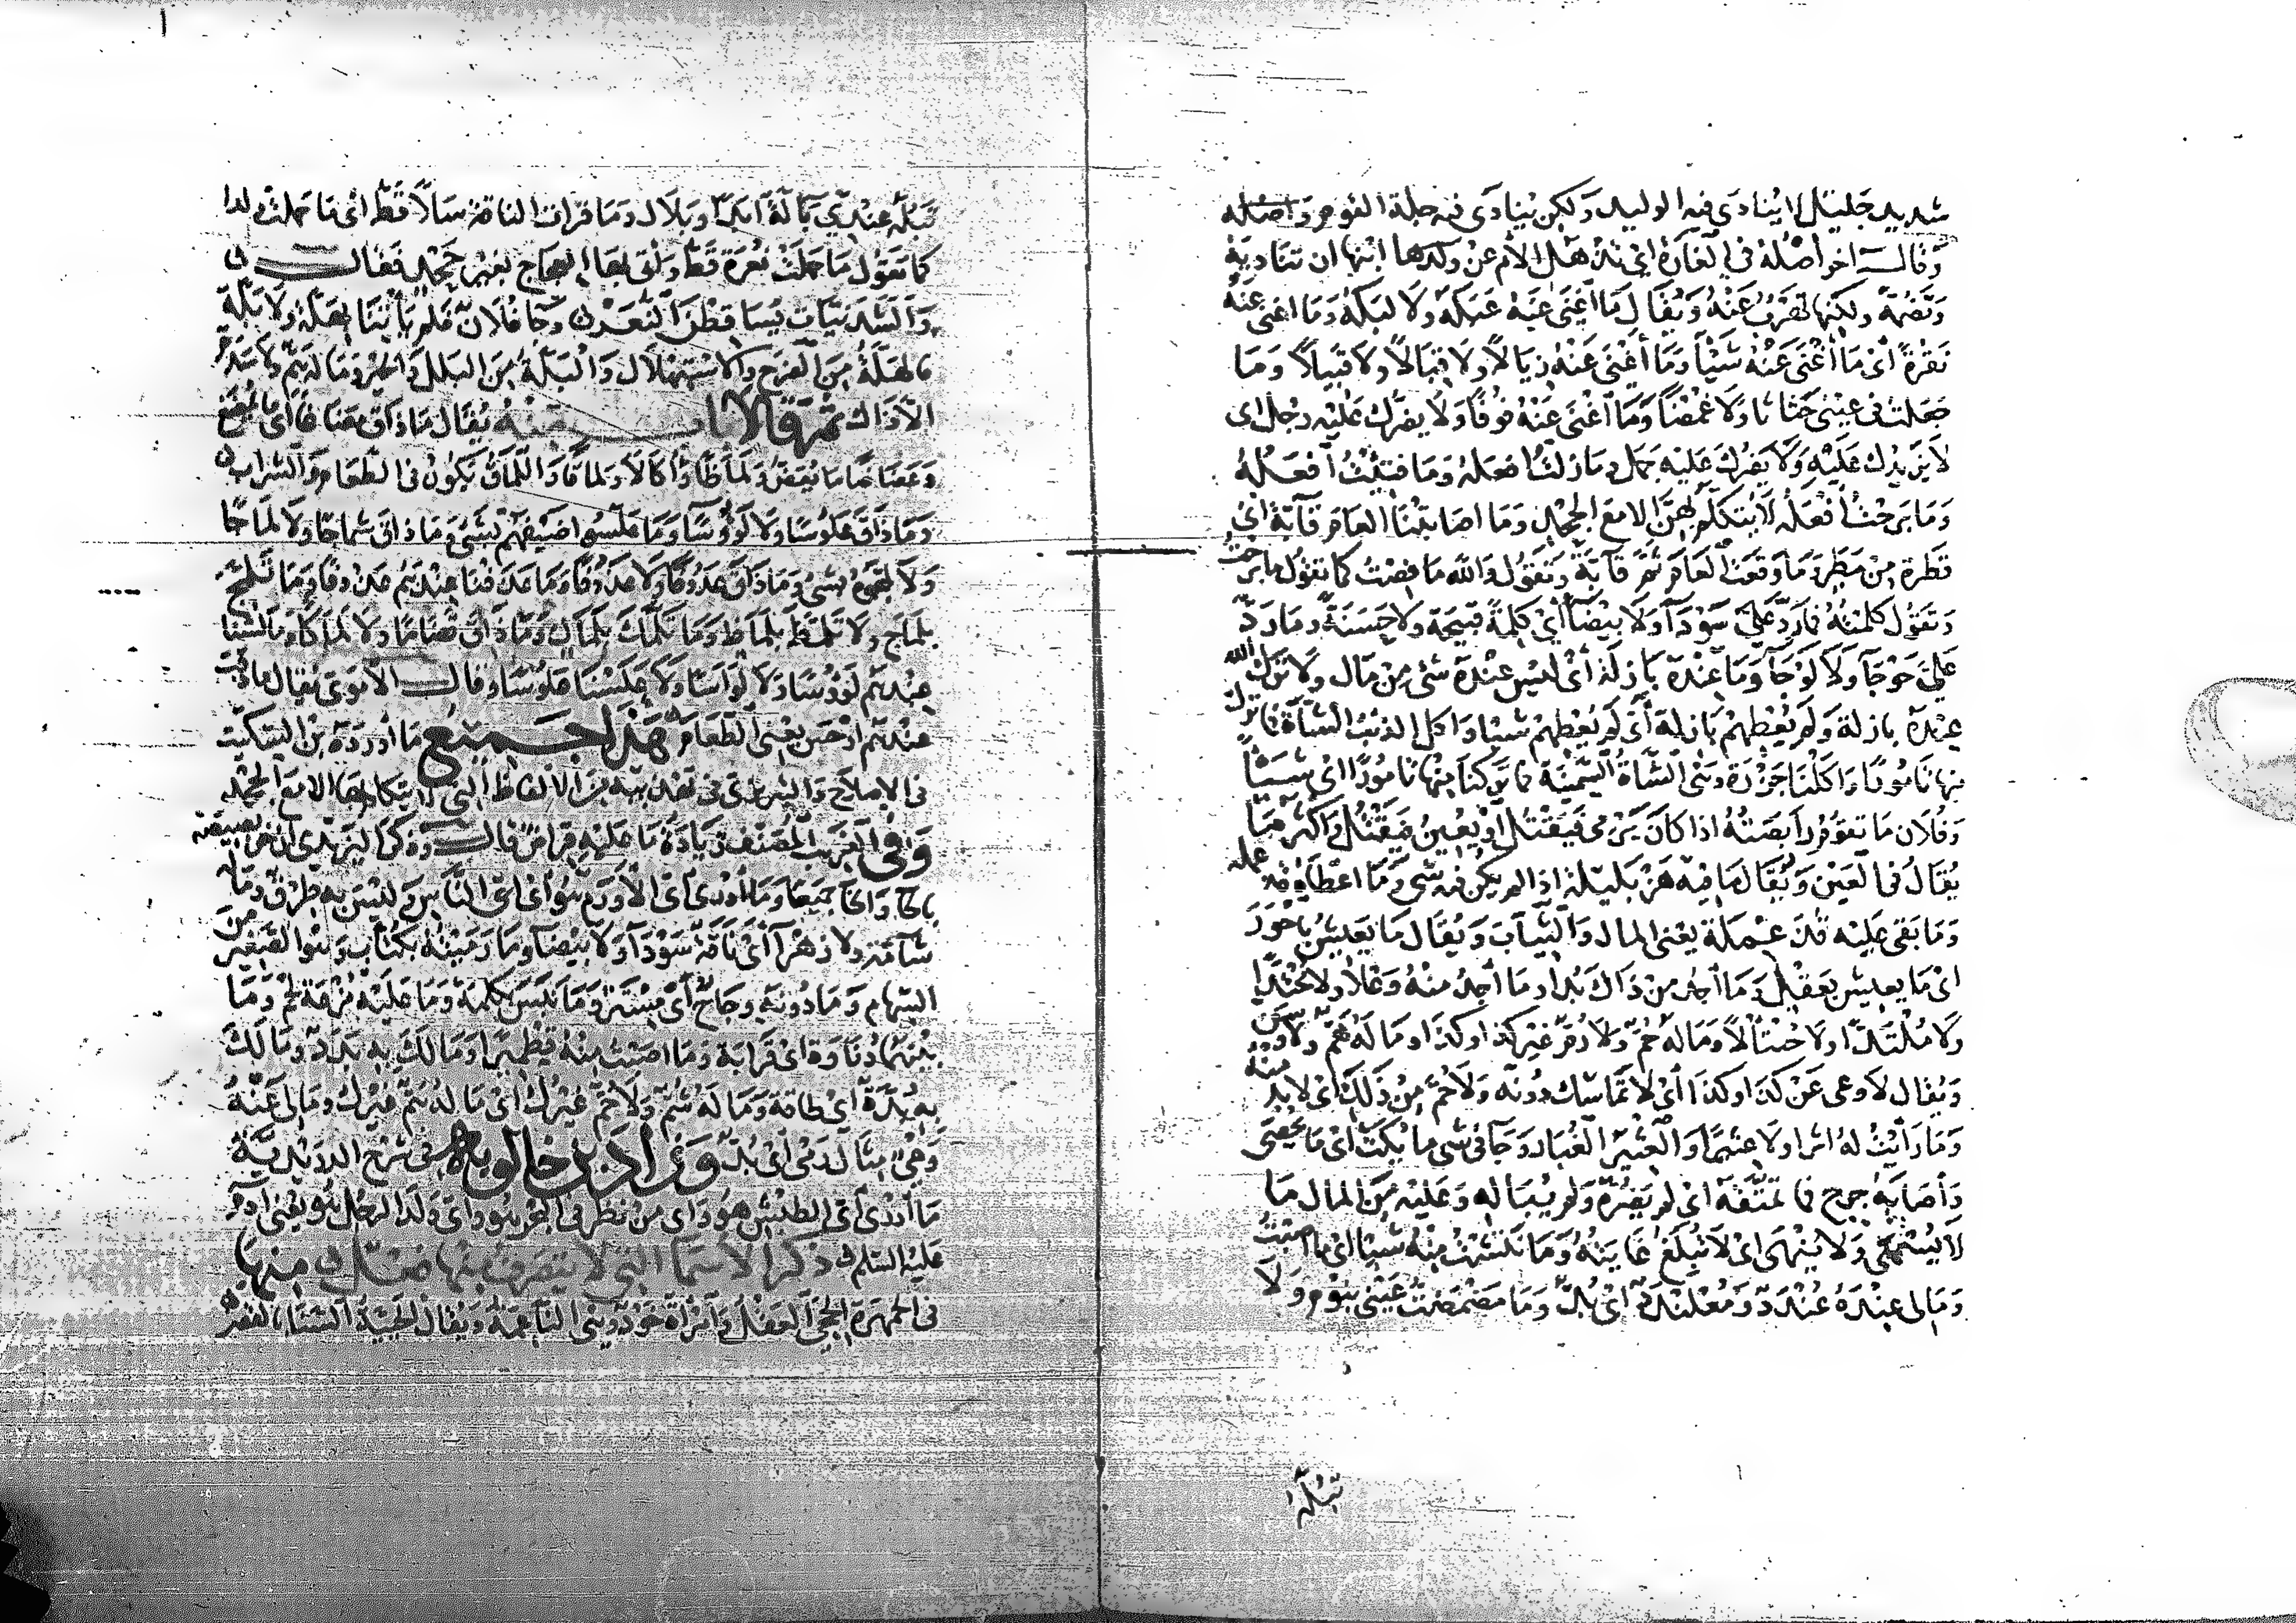 شديد جليل لا ينادى فيه الوليد ولكن ينادى فيه جلة القوم واصله
وقال اخر أصله في الغارة اي تذهل الام عن ولدها ابنها ان تناديه
وتضمه ولكنها تهرب عنه ويقال ما أغنى عنه عبكة ولا لبكة وما اغنى عنه
نقرة أي ما أغنى عنه شيأ وما أغنى عنه زبالا ولا قبالا ولا قبيلا وما
جعلت في عيني حثاثا ولا غمضا وما أغنى عنه فوفا ولا يضرك عليه رجل اى
لا يزيدك عليه ولا يضرك عليه جمل وما زلت افعله وما فتئت أفعله
وما برحت أفعله لا يتكلم بهن الا مع الجحد وما اصابتنا العام قابة اي
قطرة من مطر وما وقعت العام ثم قابة وتقول والله ما فصت كما تقول ما برحت
وتقول كلمته فما رد علي سوداء ولا بيضاء أي كلمة قبيحة ولا حسنة وما رد
علي حوجاء ولا لوجاء وما عنده بازلة أي ليس عنده شئ من مال ولا ترك الله
عنده بازلة ولم يعطهم بازلة أي لم يعطهم شيئا واكل الذئب الشاة فما ترك
منها تامورا واكلنا جزرة وهي الشاة السمينة فما تركنا منها تامورا اي شيئا
وفلان ما تقوم رابضته اذا كان يرمى فيقتل او يعين فيقتل واكثر ما
يقال في العين ويقال ما فيه هزبليلة اذا لم يكن فيه شئ وما اعطاه قذعملة
وما بقى عليه قذعملة يعنى المال والثياب ويقال ما يعيش باحور
اى ما يعيش بعقل وما أجد من ذاك بدا وما أجد منه وعلا ولا محتدا
ولا ملتدا ولا حنتألا وماله حم ولا رم غير كذا وكذا وما له هم ولا وسن
ويقال لا وعى عن كذا وكذا أي لا تماسك دونه ولا حم من ذلك اي لا بد منه
وما رأيت له اثرا ولا عثيرا والعثير الغبار وجاء في شئ ما يكت اى ما يحصى
وأصابه جرح فما تمققه اى لم يضره ولم يباله وعليه من المال ما
لا يسهى ولا ينهى اى لا تبلغ غايته وما نتشت منه شيئا اي ما اصبت
وما لى عنده عندد ومعلندد أي بد وما مضمضت عيني بنوم ولا
تبلة
تبلة عندي بالة أبدا وبلال وما قرات الناقة سلا قط اى ما حملت ولدا
كما تقول ما حملت نعرة قط وأتى بها العجاج بغير جحد فقال
والشدنيات يساقطن النعر وجاء فلان فلم يأتنا بهلة ولا بلة
فالهلة من الفرح والاستهلال والبلة من البلل والخير وماله هم ولا سدم
الا ذاك ثم قال باب منه يقال ما ذاق مضاغا أي ما يمضغ
وعضاضا ما يعض ولماظا وأكالا ولماقا واللماق يكون في الطعام والشراب
وما ذاق علوسا ولا لووسا وما علسوا ضيفهم بشئ وما ذاق شماجا ولا لماجا
ولا لمجوه بشئ وما ذاق عدوفا ولا عدوفا وما عدفنا عندهم عدوفا وما تلمج
بلماج ولا تلمظ بلماظ وما تلمك بلماك وما ذاق قضاما ولا لماكا وما لسنا
عندهم لووسا ولا لواسا ولا علسنا علوسا وقال الأموى يقال ما ذقت
عندهم اوجس يعنى الطعام هذا جميع ما أورده بن السكيت
في الإصلاح والتبريزي في تهذيبه من الالفاظ التي لا يتكلم بها الا مع الجحد
وفي الغريب المصنف زيادة ما عليه فراض قال وذكر اليزيدي ان حربصيصة
بالحا والخا جميعا وما أدرى اى الأورم هو أي أى الناس وليس به طرق وماله
شامة ولا زهراء أي ناقة سوداء ولا بيضاء وما رميته بكثاب وهو الصغير من
السهام وما دونه وجاح أي سترة وما نبس بكلمة وما عليه مزعة لحم وما
بينهما دناوة اى قرابة وما اصبت منه قطميرا وما لك به بدد وما لك
به بدة أي طاقة وما له سم ولا حم غيرك أي ما له هم غيرك وما لى عنه
وعي مثال رمي اى بد وزاد بن خالويه في شرح الدريدية
ما أدرى أي الطمش هو واي من نظر في البحر هو واي ولد الرجل هو يعني ادم
عليه السلم ذكر الأسما التي لا يتصرف منها فعل منها
في الجمهرة الحجى العقل وامرأة خود وهي الناعمة ويقال